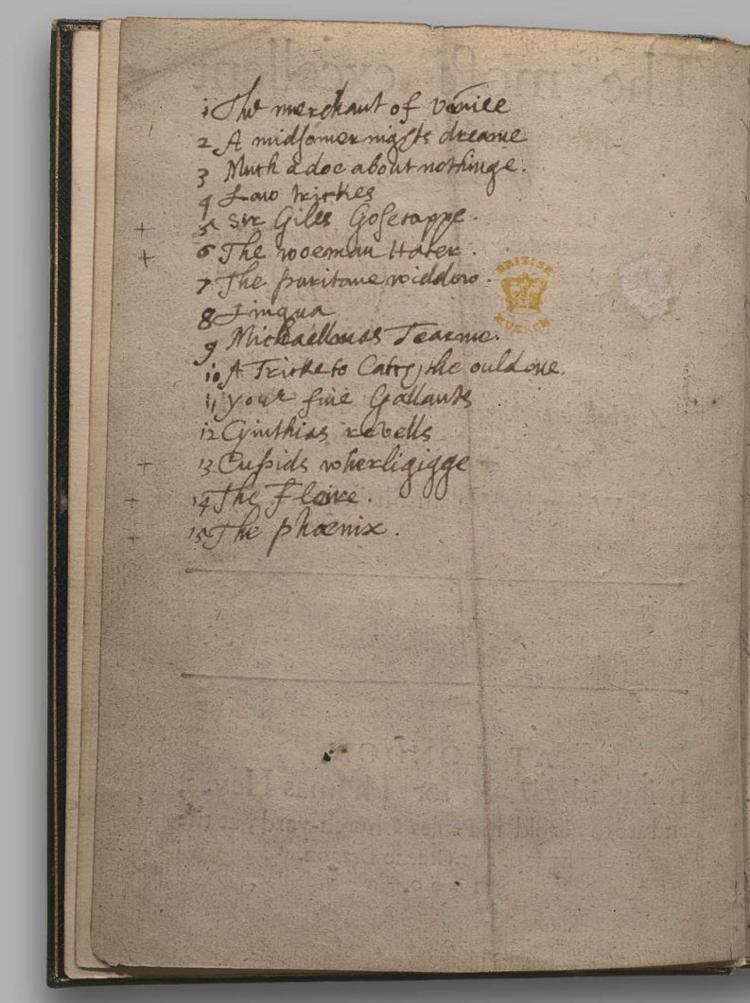 1 The merchant of venice
2 A midsomer nights dreame
3 Much adoe about nothinge.
4 Law trickes
+ 5 Sir Giles Gosecappe.
+ 6 The woeman Hater.
7 The puritane widdow.
BRITISH
MUSEUM
8 Lingua
9 Michaellmas Tearme.
10 A Tricke to Catch the ould one.
11 your five Gallants
12 Cynthias revells
+ 13 Cupids wherligigge
+ 14 The Fleire.
+ 15 The phœnix.